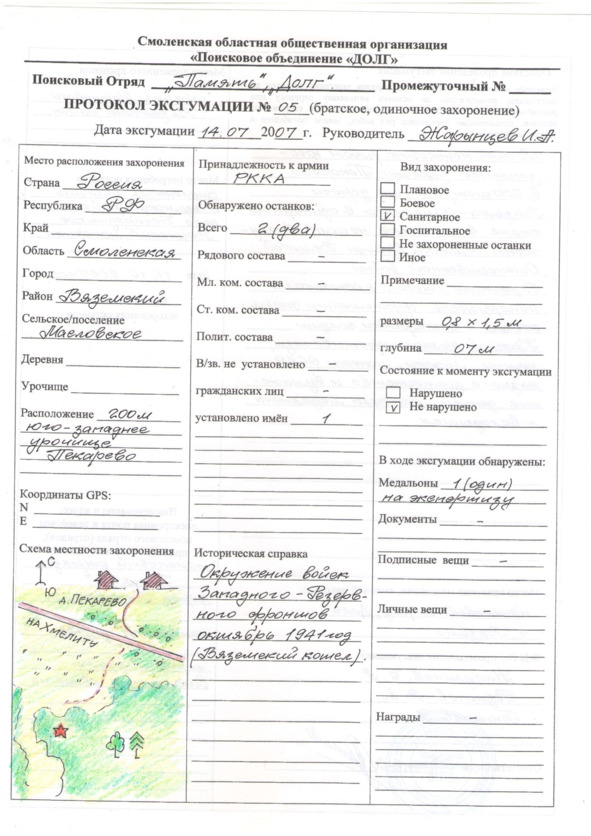 Смоленская областная общественная организация
«Поисковое объединение «ДОЛГ»
Поисковый Отряд „Память“, „Долг“. Промежуточный №
ПРОТОКОЛ ЭКСГУМАЦИИ № 05 (братское, одиночное захоронение)
Дата эксгумации 14.07 2007 г. Руководитель Жарынцев И.А.
Место расположения захоронения
Страна Россия
Республика РФ
Край –
Область Смоленская
Город –
Район Вяземский
Сельское/поселение
Масловское
Деревня –
Урочище –
Расположение 200м
юго-западнее
урочище
Пекарево
Координаты GPS:
N
E
Схема местности захоронения
С
Ю
д. ПЕКАРЕВО
НА ХМЕЛИТУ
Принадлежность к армии
РККА
Обнаружено останков:
Всего 2 (два)
Рядового состава –
Мл. ком. состава –
Ст. ком. состава –
Полит. состава –
В/зв. не установлено –
гражданских лиц –
установлено имён 1
Историческая справка
Окружение войск
Западного - Резерв-
ного фронтов
октябрь 1941 год
(Вяземский котел).
Вид захоронения:
Плановое
Боевое
V Санитарное
Госпитальное
Не захороненные останки
Иное
Примечание
размеры 0,8 × 1,5 м
глубина 07 м
Состояние к моменту эксгумации
Нарушено
V Не нарушено
В ходе эксгумации обнаружены:
Медальоны 1 (один)
на экспертизу
Документы –
Подписные вещи –
Личные вещи –
Награды –